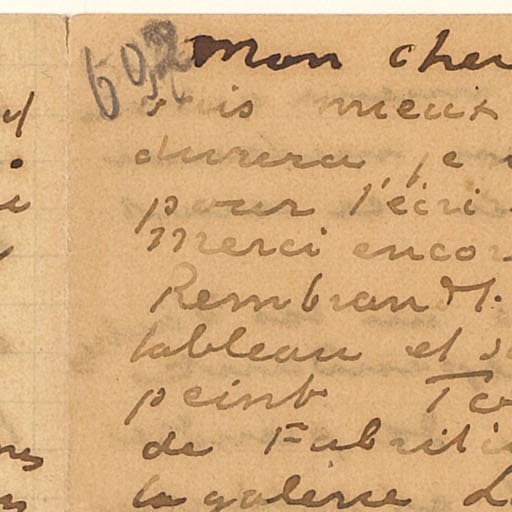 602
Mon cher
suis mieux
durera je
pour l'écri
Merci encor
Rembrandt.
tableau et s
peint
de Fabriti
la galerie L